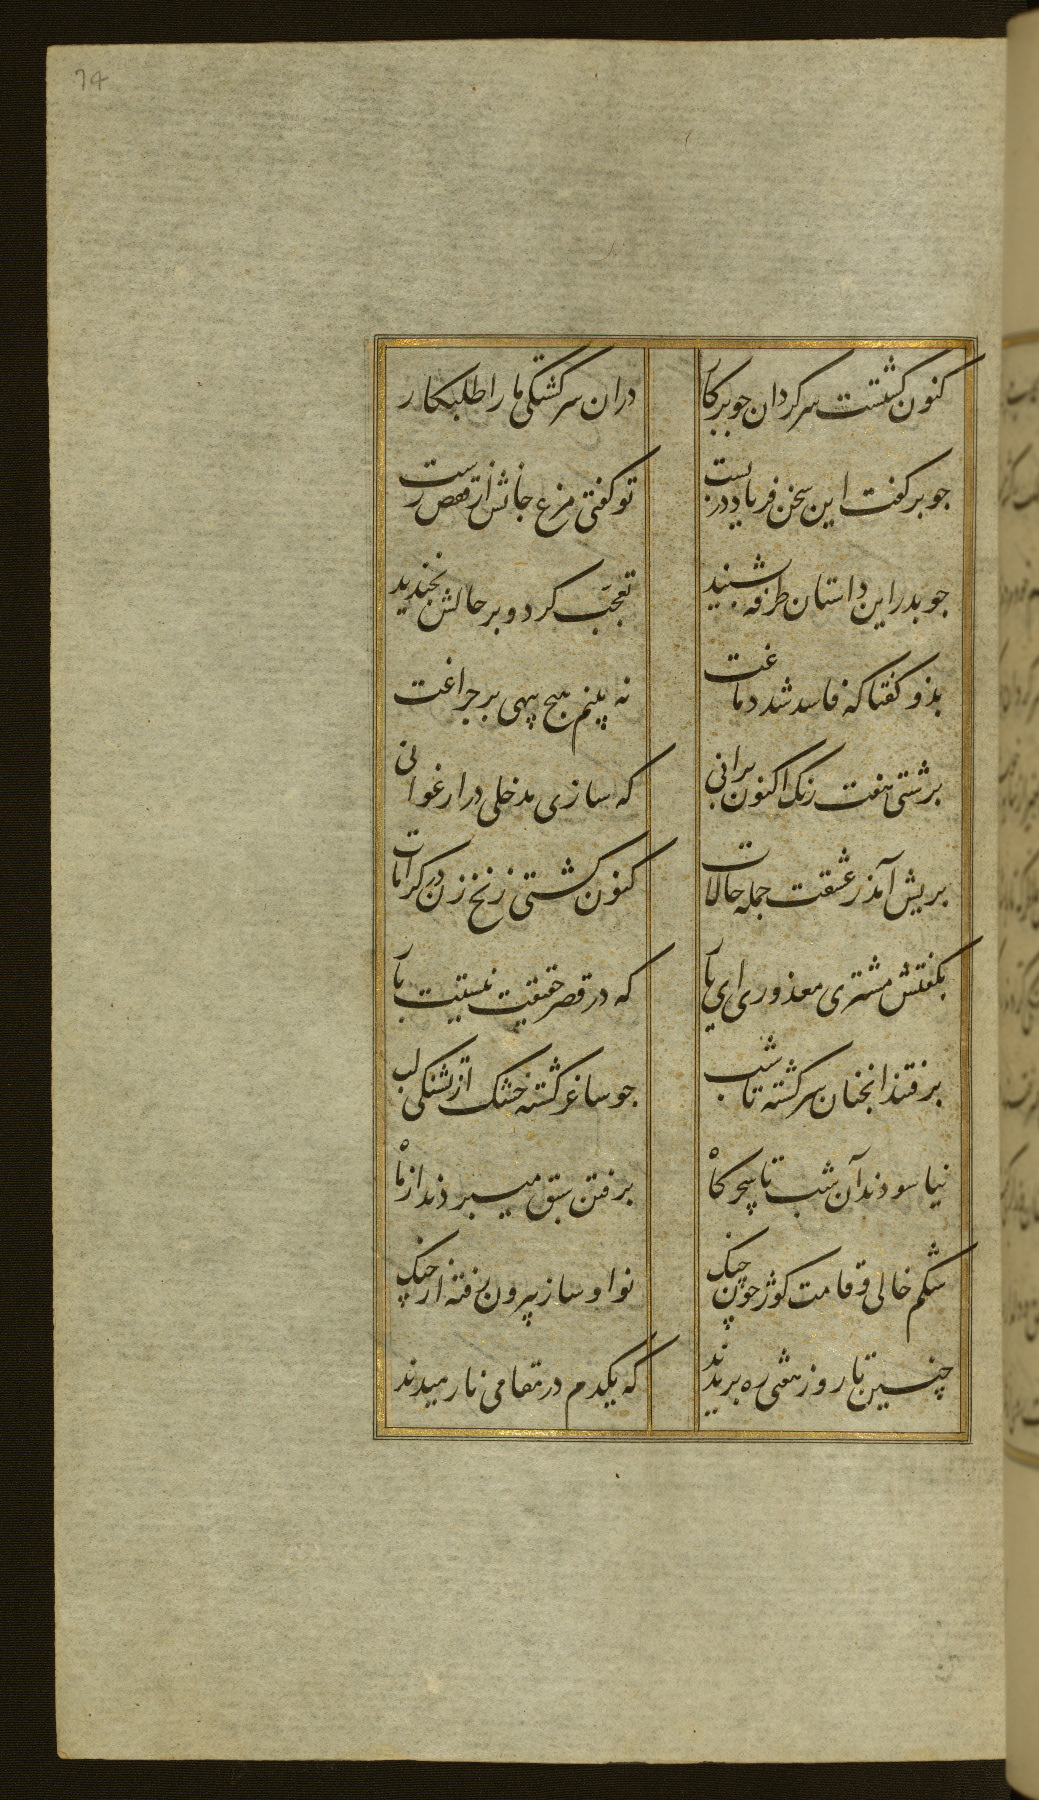 74
کنون کشتست سرکردان جو برکار دران سرکشتکی ما را طلبکار
جو بر کفت این سخن فریاد در بست تو کفتی مرغ جانش از قفص رست
جو بدر این داستان طرفه بشنید تعجب کرد و بر حالش بخندید
بذو کفتا که فاسد شد دماغت نه بینم هیج بهی بر جراغت
برشتی هفت رنک اکنون برانی که سازی مدخلی در ارغوانی
بریش آمذ ز عشقت جمله حالات کنون کشتی زنخ زن در کرامات
بکفتش مشتری معذوری ای یار که در قصر حقیقت نیستت بار
برفتند انجنان سرکشته تا شب جو ساغر کشته خشک از تشنکی لب
نیاسودند آن شب تا سحرکاه برفتن سبق میبردند از ماه
شکم خالی و قامت کوژ جون جنک نوا و ساز بیرون رفته از جنک
جنین تا روز مشی ره بریدند که یکدم در مقامی نارمیدند